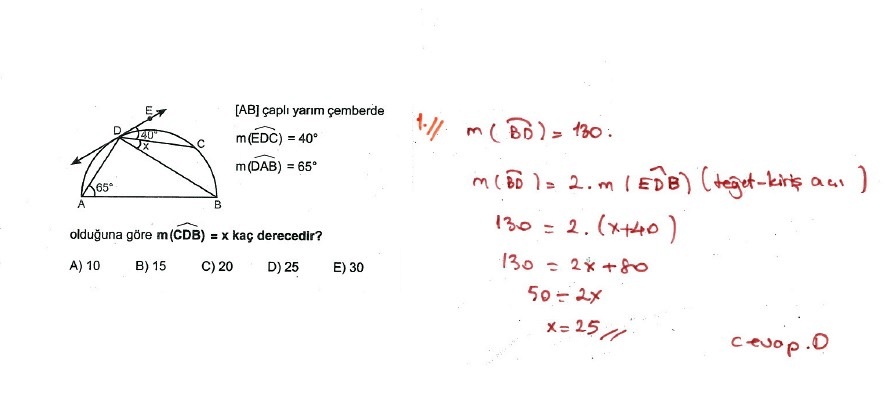 E
D
40°
C
x
65°
A
B
[AB] çaplı yarım çemberde
m(EDC) = 40°
m(DAB) = 65°
olduğuna göre m(CDB) = x kaç derecedir?
A) 10 B) 15 C) 20 D) 25 E) 30
1.//
m(BD) = 130.
m(BD) = 2.m(EDB) (teğet-kiriş açı)
130 = 2.(x+40)
130 = 2x+80
50 = 2x
x=25//
cevap.D